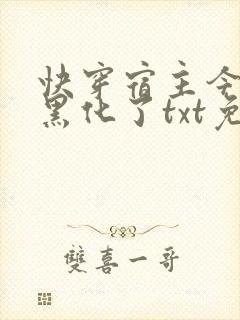 快穿宿主
黑化了txt免
雙喜一哥